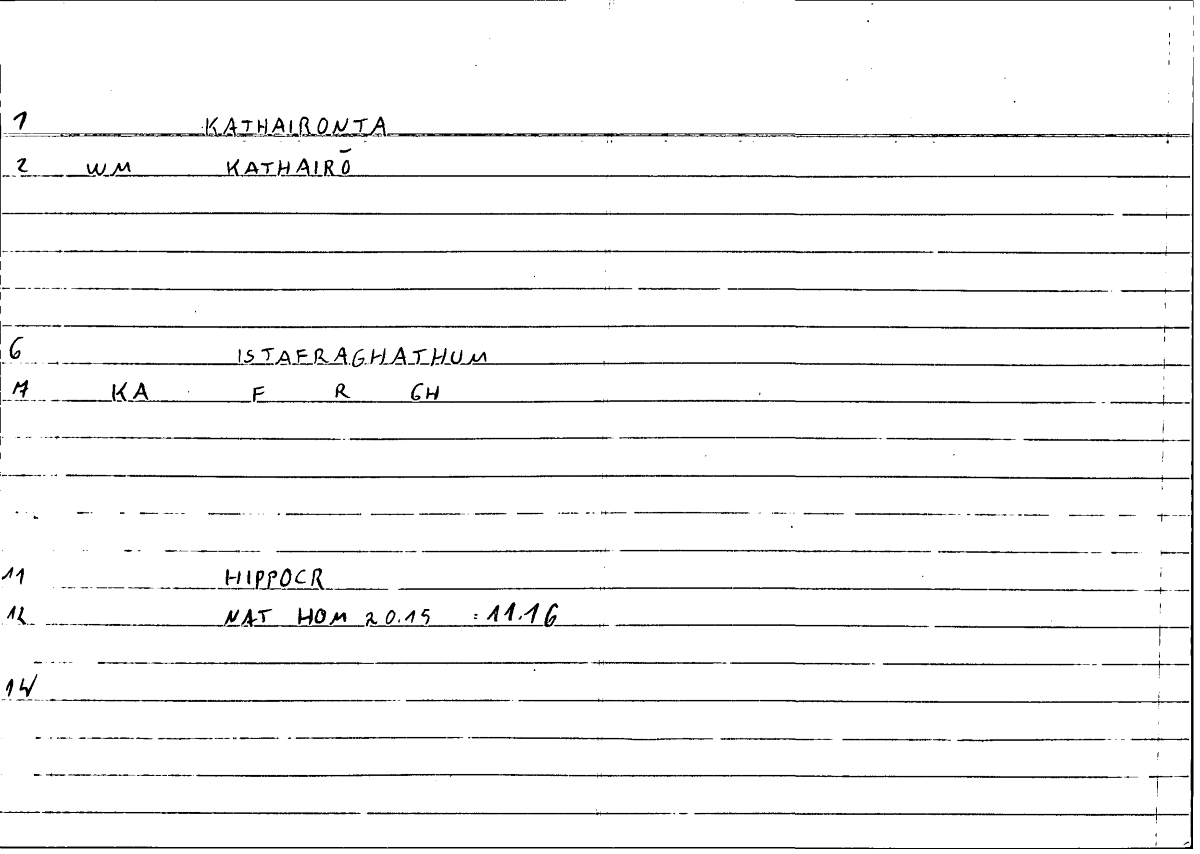 1 KATHAIRONTA
2 WM KATHAIRŌ
6 ISTAFRAGHATHUM
7 KA F R GH
11 HIPPOCR
12 NAT HOM 20.15 : 11.16
14